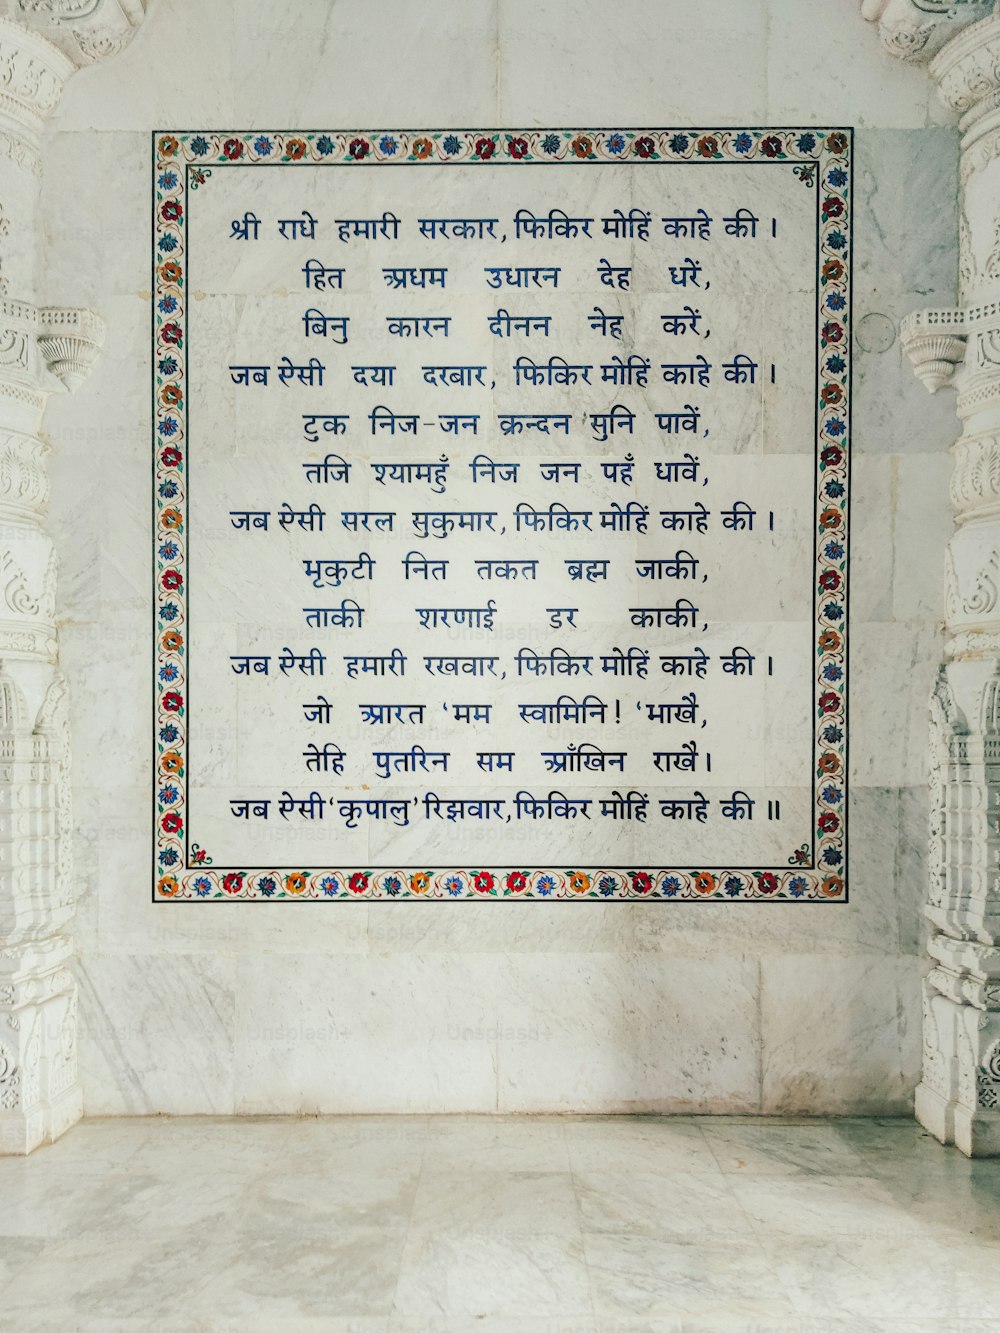 श्री राधे हमारी सरकार, फिकिर मोहिं काहे की ।
हित अधम उधारन देह धरें,
बिनु कारन दीनन नेह करें,
जब ऐसी दया दरबार, फिकिर मोहिं काहे की ।
टुक निज-जन क्रन्दन सुनि पावें,
तजि श्यामहुँ निज जन पहँ धावें,
जब ऐसी सरल सुकुमार, फिकिर मोहिं काहे की ।
भृकुटी नित तकत ब्रह्म जाकी,
ताकी शरणाई डर काकी,
जब ऐसी हमारी रखवार, फिकिर मोहिं काहे की ।
जो आरत ‘मम स्वामिनि! ‘भाखै,
तेहि पुतरिन सम आँखिन राखै।
जब ऐसी ‘कृपालु’ रिझवार, फिकिर मोहिं काहे की ॥